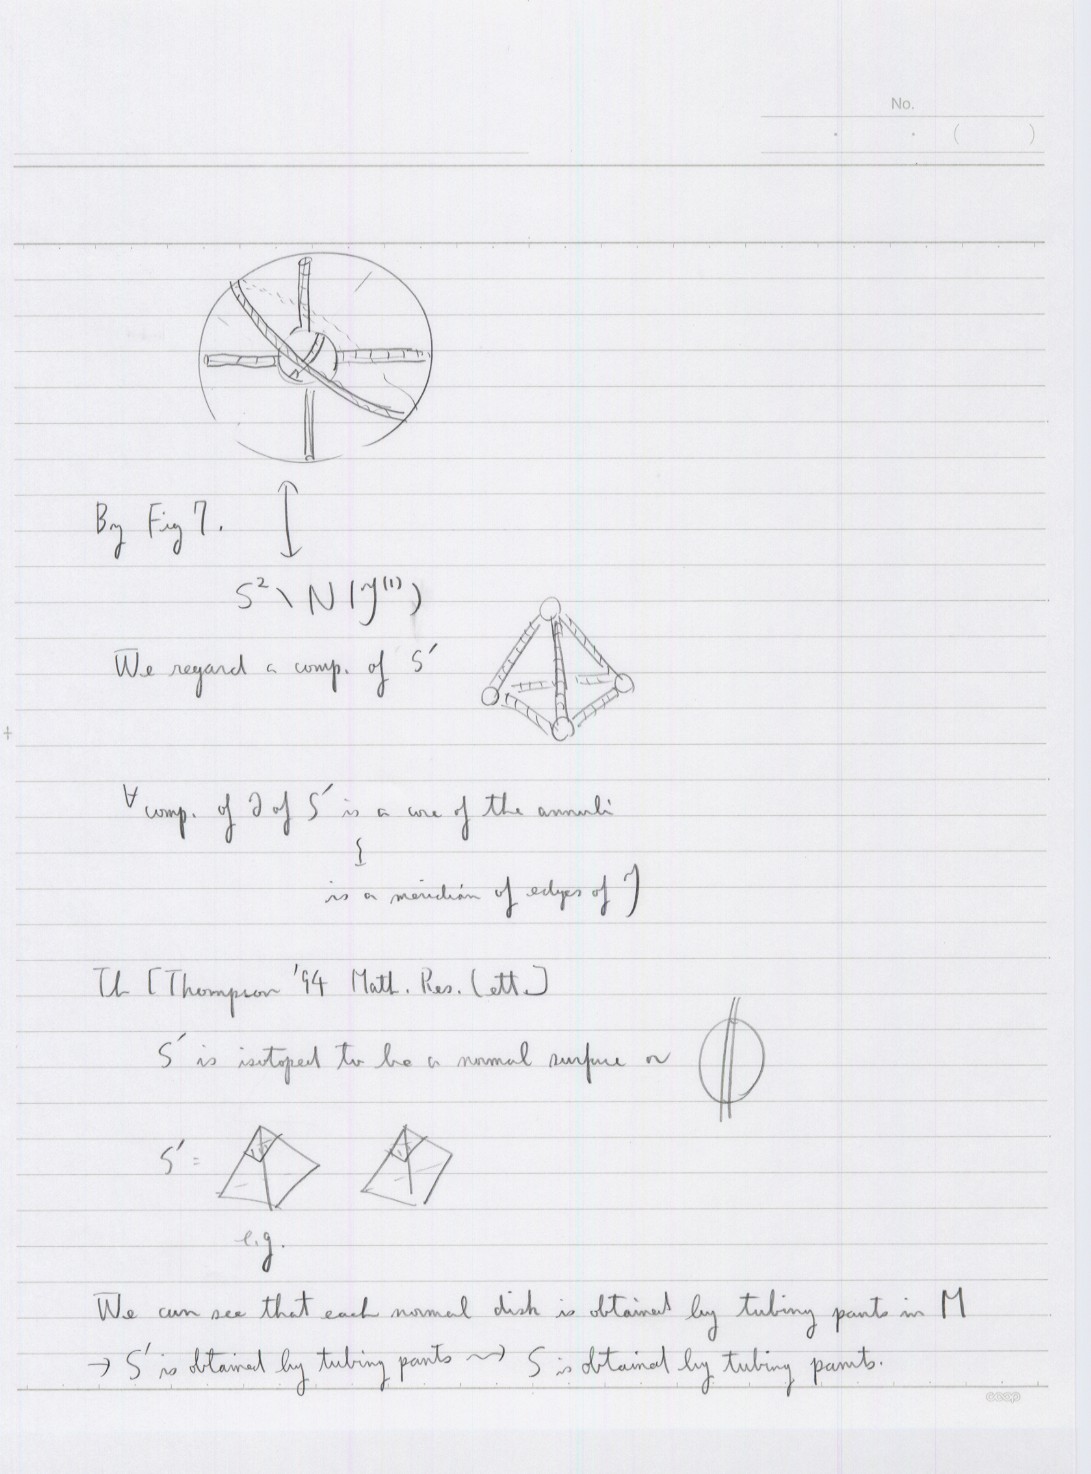 No.
( )
By Fig 7.
S² \ N(𝒯⁽¹⁾)
We regard a comp. of S′
∀ comp. of ∂ of S′ is a core of the annuli
is a meridian of edges of 𝒯
Th [Thompson '94 Math. Res. Lett.]
S′ is isotoped to be a normal surface or
S′ =
e.g.
We can see that each normal disk is obtained by tubing pants in M
→ S′ is obtained by tubing pants ⇝ S is obtained by tubing pants.